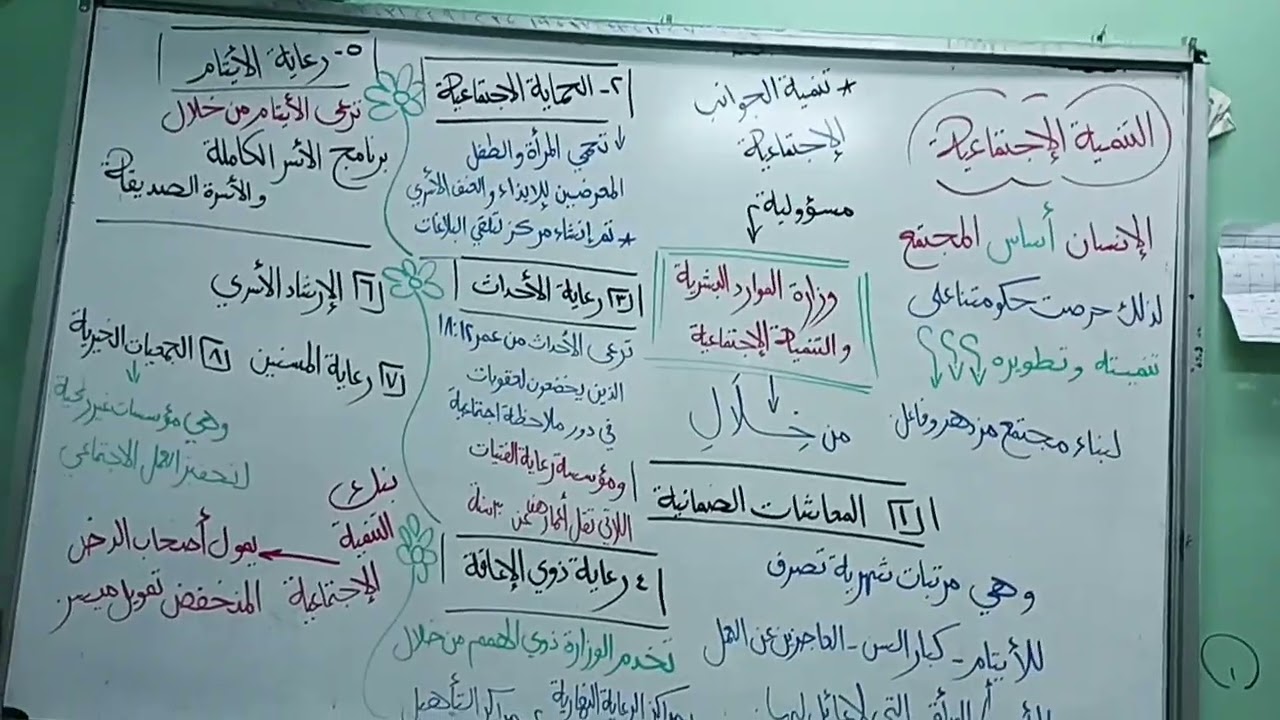 التنمية الإجتماعية
الإنسان أساس المجتمع
لذلك حرصت حكومتنا على
تنميته وتطويره
لبناء مجتمع مزدهر وفاعل
* تنمية الجوانب
الإجتماعية
مسؤولية
وزارة الموارد البشرية
والتنمية الإجتماعية
من خِلَالِ
١ المعاشات الضمانية
وهي مرتبات شهرية تصرف
للأيتام - كبار السن - العاجزين عن العمل
التي لا عائل لها
٢- الحماية الاجتماعية
تحمي المرأة والطفل
المعرضين للإيذاء والعنف الأسري
* تم إنشاء مركز لتلقي البلاغات
٣ رعاية الأحداث
ترعى الأحداث من عمر ١٢:١٨
الذين يخضعون لعقوبات
في دور ملاحظة اجتماعية
ومؤسسة رعاية الفتيات
اللاتي تقل أعمارهن عن ٣٠ سنة
٤ رعاية ذوي الإعاقة
تخدم الوزارة ذوي الهمم من خلال
مراكز الرعاية النهارية مراكز التأهيل
٥- رعاية الأيتام
ترعى الأيتام من خلال
برنامج الأسر الكاملة
والأسرة الصديقة
٦ الإرشاد الأسري
٧ رعاية المسنين ٨ الجمعيات الخيرية
وهي مؤسسات غير ربحية
لتحفيز العمل الاجتماعي
بنك
التنمية
الإجتماعية
يمول أصحاب الدخل
المنخفض تمويل ميسر
١